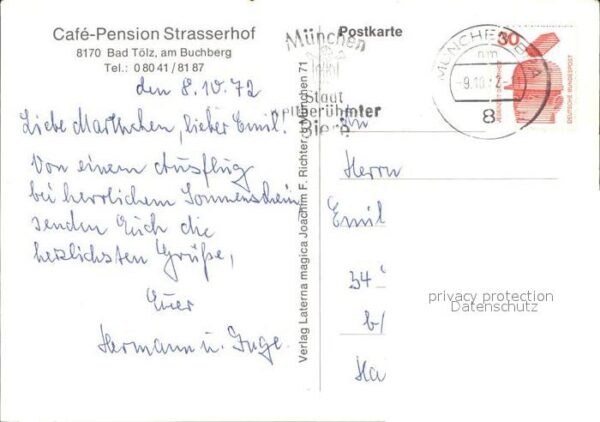 Café-Pension Strasserhof
8170 Bad Tölz, am Buchberg
Tel.: 0 80 41 / 81 87
den 8.10.72
Liebe Marthchen, lieber Emil!
Von einem Ausflug
bei herrlichem Sonnenschein
senden Euch die
herzlichsten Grüße,
Euer
Hermann u. Inge.
Verlag Laterna magica Joachim F. Richter, 8 München 71
Postkarte
München
Stadt
weltberühmter
Biere
MÜNCHEN
-9.10.
8
30
DEUTSCHE BUNDESPOST
An
Herrn
Emil
34
b/
Ha
privacy protection
Datenschutz